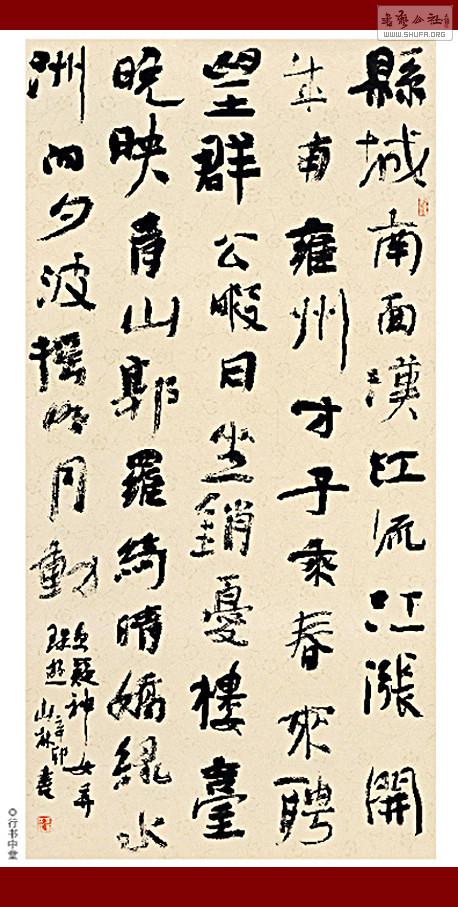 書藝公社
WWW.SHUFA.ORG
縣城南面漢江流江漲開
成南雍州才子乘春來聘
望群公暇日坐銷憂樓臺
晚映青山郭羅綺晴嬌綠水
洲向夕波搖明月動
更疑神女弄
珠遊 辛卯
山林書
◎行书中堂